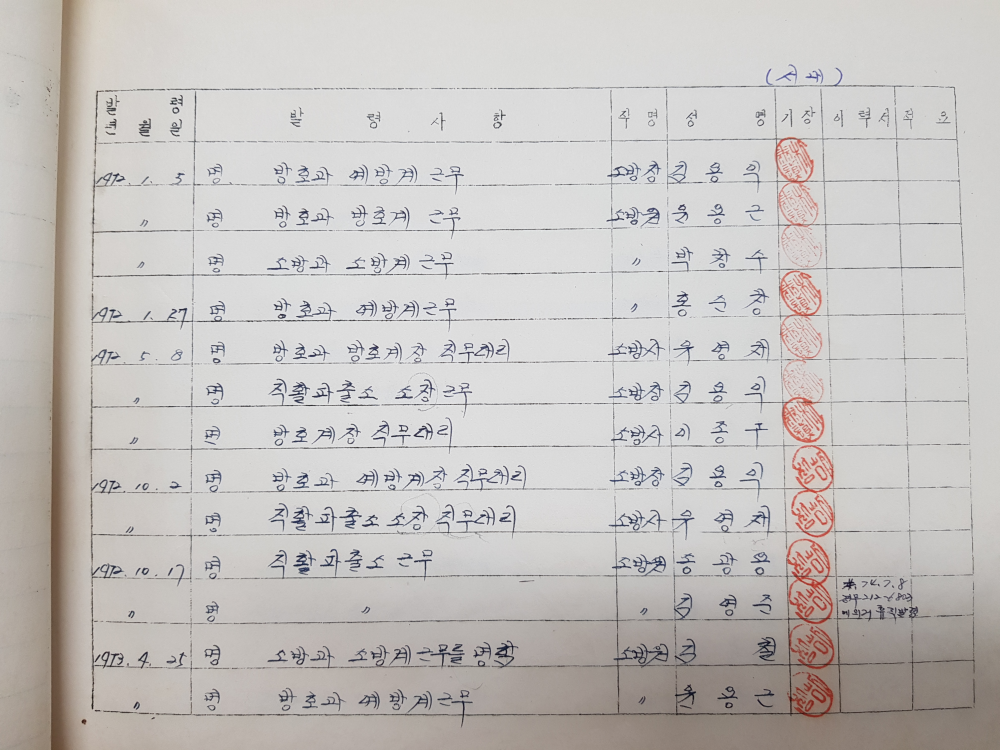 (서 제)
발 령
년 월 일 발 령 사 항 직 명 성 명 기장 이 력 서 적 요
1972. 1. 5 명 방호과 예방계 근무 소방장 김 용 익
〃 명 방호과 방호계 근무 소방원 윤 용 근
〃 명 소방과 소방계 근무 〃 박 창 수
1972. 1. 27 명 방호과 예방계 근무 〃 홍 순 창
1972. 5. 8 명 방호과 방호계장 직무대리 소방사 우 영 제
〃 명 직활파출소 소장 근무 소방장 김 용 익
〃 면 방호계장 직무대리 소방사 이 종 구
1972. 10. 2 명 방호과 예방계장 직무대리 소방장 김 용 익
〃 명 직활파출소 소장 직무대리 소방사 우 영 제
1972. 10. 17 명 직활파출소 근무 소방원 송 광 용
〃 명 〃 〃 김 영 준 74. 7. 8
1973. 4. 25 명 소방과 소방계 근무를 명함 소방원 김 철
〃 명 방호과 예방계 근무 〃 윤 용 근